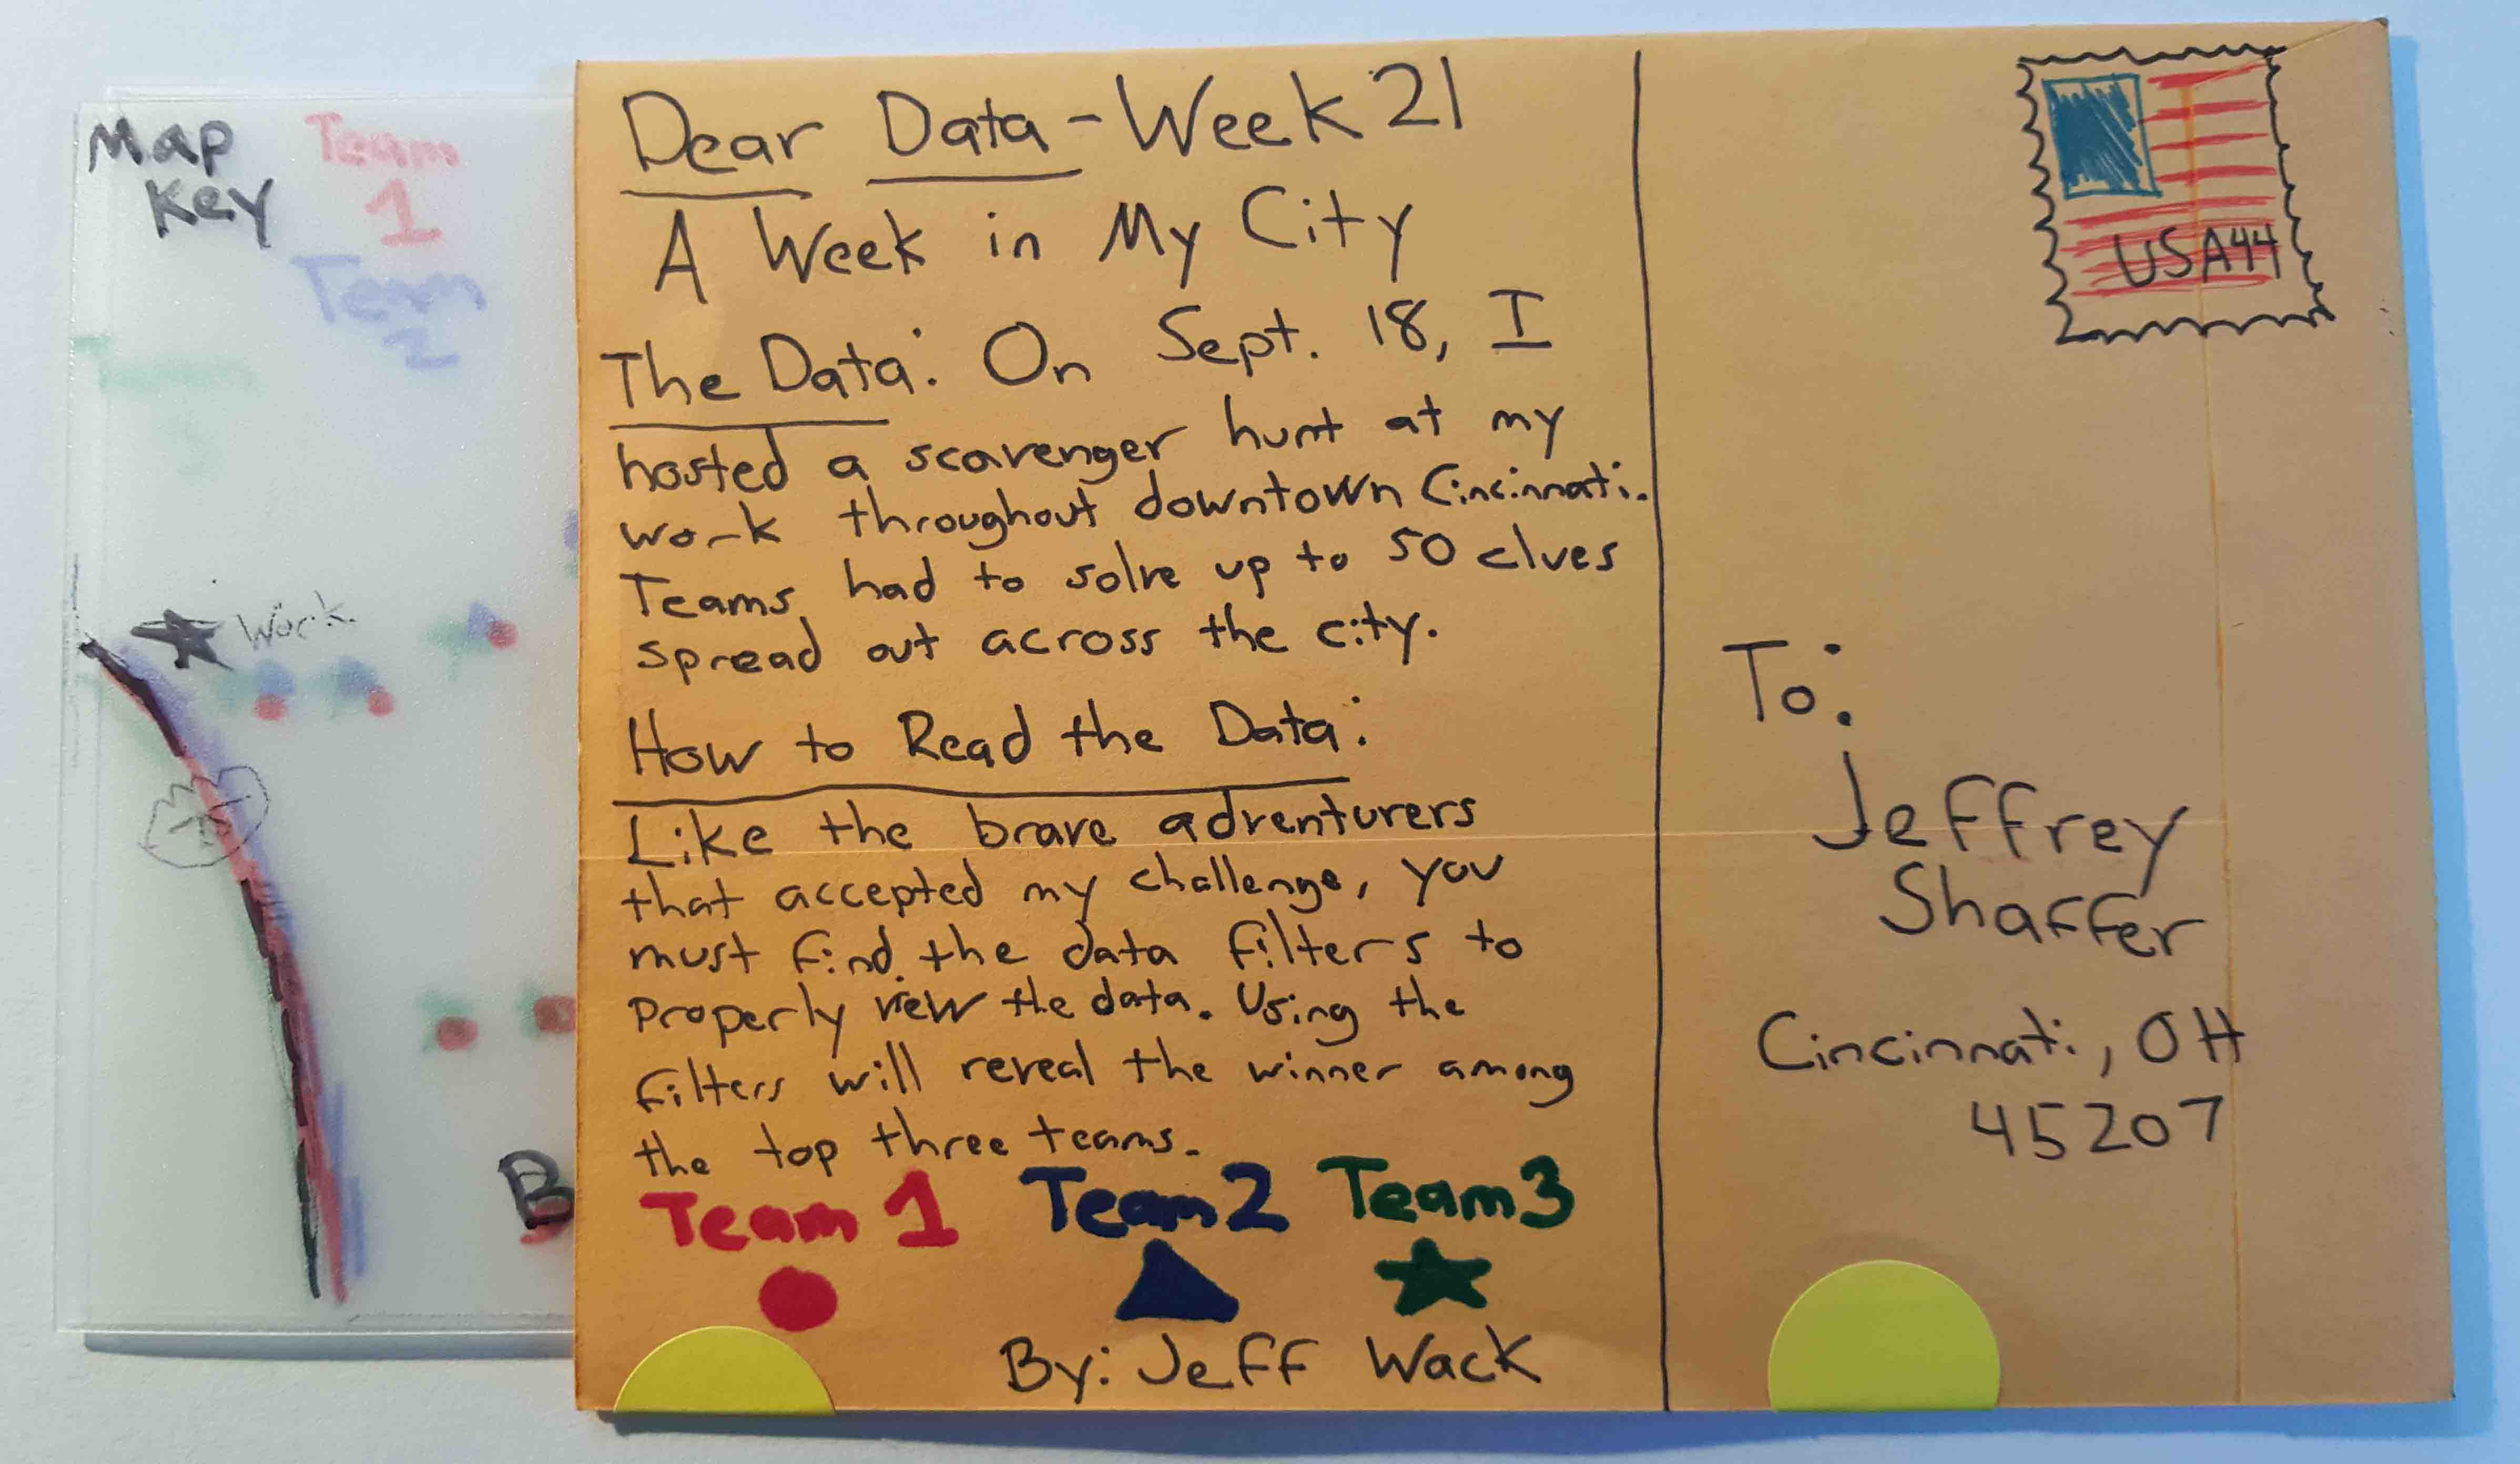 Map
Key
Team
1
Team
2
Team
3
Work
B
Dear Data - Week 21
A Week in My City
The Data: On Sept. 18, I
hosted a scavenger hunt at my
work throughout downtown Cincinnati.
Teams had to solve up to 50 clues
spread out across the city.
How to Read the Data:
Like the brave adventurers
that accepted my challenge, you
must find the data filters to
properly view the data. Using the
filters will reveal the winner among
the top three teams.
Team 1 Team 2 Team 3
By: Jeff Wack
USA44
To:
Jeffrey
Shaffer
Cincinnati, OH
45207